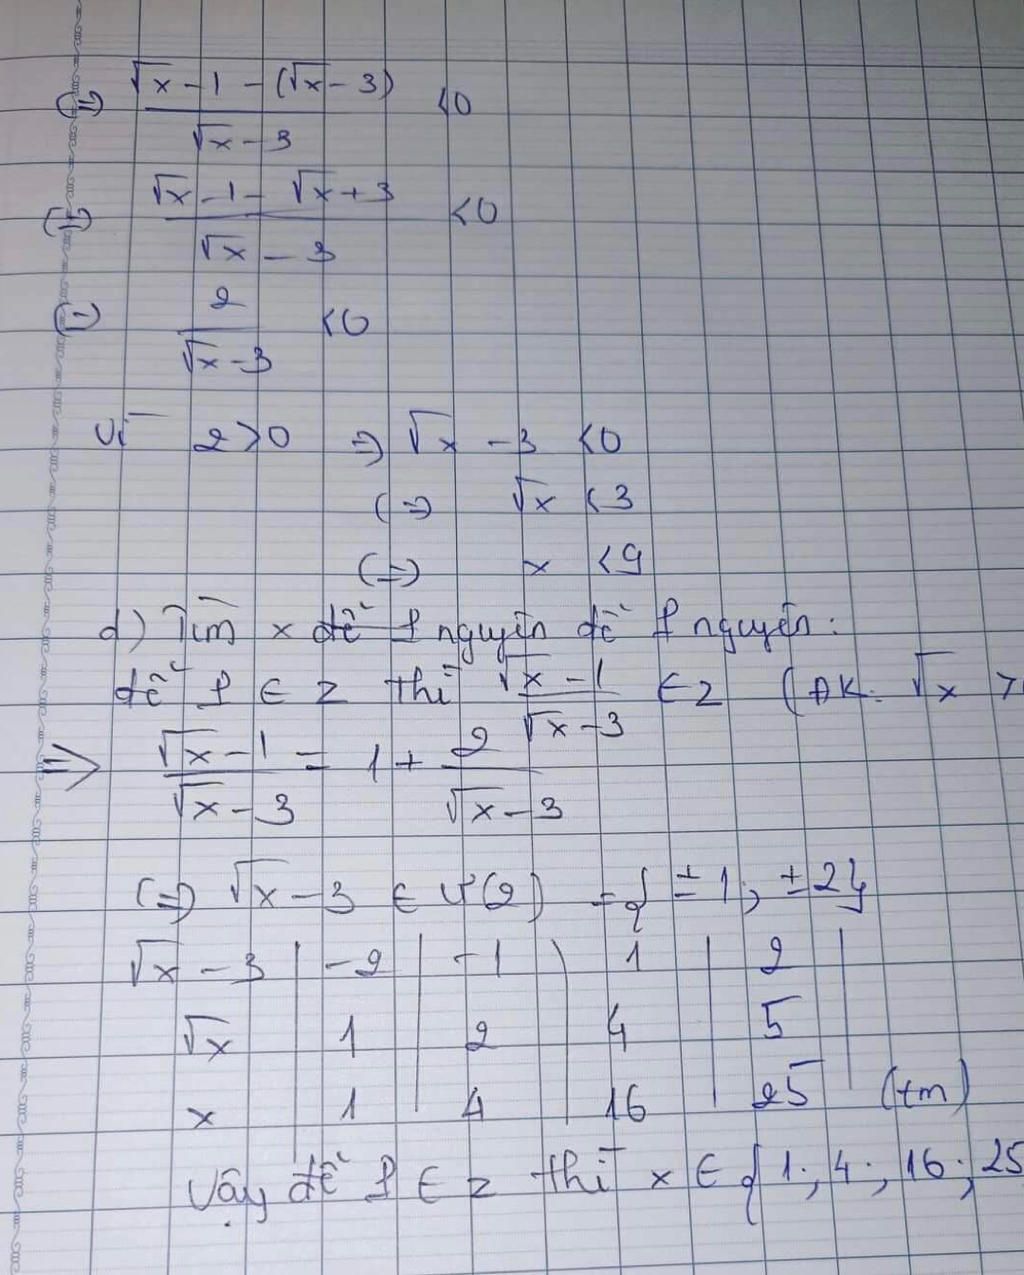 (=) √x - 1 - (√x - 3) / √x - 3 < 0
(=) √x - 1 - √x + 3 / √x - 3 < 0
(=) 2 / √x - 3 < 0
Vì 2 > 0 => √x - 3 < 0
(=) √x < 3
(=) x < 9
d) Tìm x để P nguyên để P nguyên:
để P ∈ Z thì √x - 1 / √x - 3 ∈ Z (ĐK: √x >
=> √x - 1 / √x - 3 = 1 + 2 / √x - 3
(=) √x - 3 ∈ Ư(2) = { ± 1 ; ± 2 }
√x - 3 | -2 | -1 | 1 | 2 |
√x | 1 | 2 | 4 | 5 |
x | 1 | 4 | 16 | 25 | (tm)
Vậy để P ∈ Z thì x ∈ { 1 ; 4 ; 16 ; 25